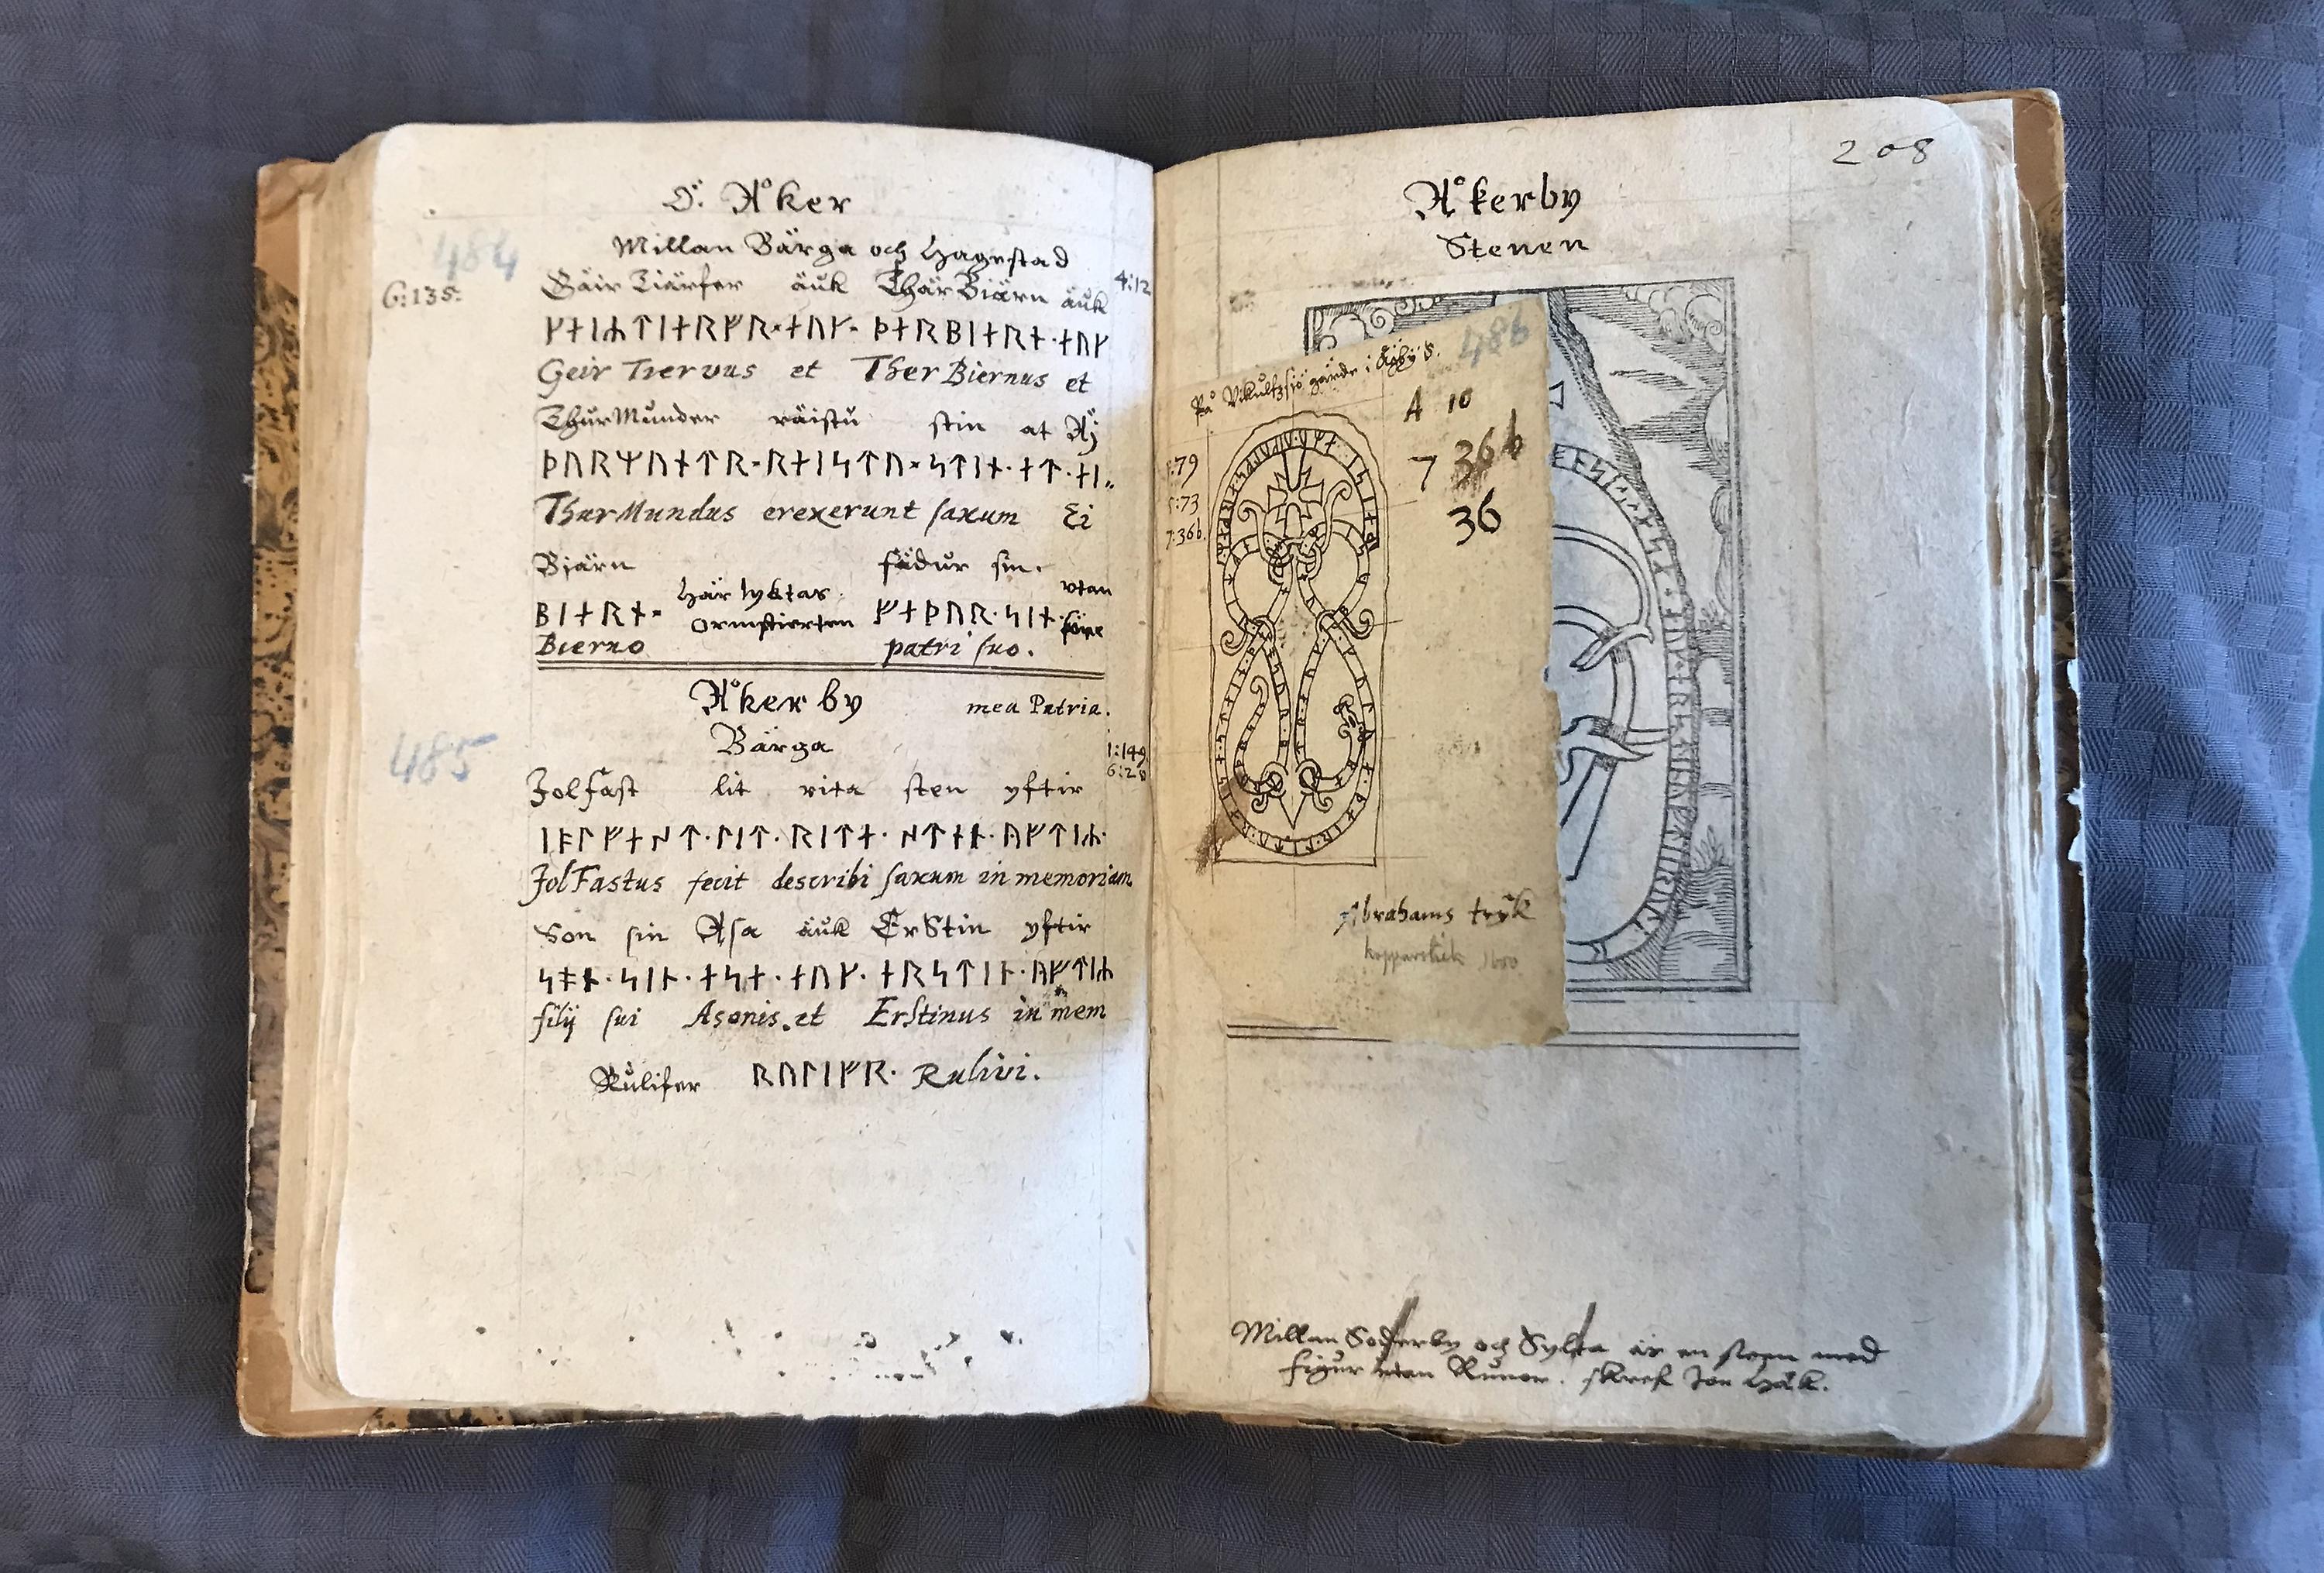 Ö: Åker
484
Millan Bärga och Hagestad
6:135:
Gäir Tiärfer äuk ThärBiärn äuk
4:12
ᚴᛅᛁᛦᛏᛁᛅᚱᚠᚱ·ᛅᚢᚴ·ᚦᛅᚱᛒᛁᛅᚱᚾ·ᛅᚢᚴ
Geir Tiervus et TherBiernus et
ThurMunder räistu stin at Äy
ᚦᚢᚱᛘᚢᚾᛏᚱ·ᚱᛅᛁᛋᛏᚢ·ᛋᛏᛁᚾ·ᛅᛏ·ᛅᛁ
ThurMundus erexerunt saxum Ei
Bjärn fädur sin.
här lyktas utan
ormstierten
ᛒᛁᛅᚱᚾ· ᚠᛅᚦᚢᚱ·ᛋᛁᚾ·
Bierno patri suo.
Åkerby mea Patria.
Bärga
485
1:149
6:28
Jolfast lit rita sten yftir
ᛁᚬᛚᚠᛅᛋᛏ·ᛚᛁᛏ·ᚱᛁᛏᛅ·ᛋᛏᛅᚾ·ᚢᚠᛏᛁᛦ·
JolFastus fecit describi saxum in memoriam
Son sin Asa äuk ErStin yftir
ᛋᚬᚾ·ᛋᛁᚾ·ᛅᛋᛅ·ᛅᚢᚴ·ᛅᚱᛋᛏᛁᚾ·ᚢᚠᛏᛁᛦ
filij sui Asonis. et ErStinus in mem
Rulifer ᚱᚢᛚᛁᚠᚱ· Rulivi.
208
Åkerby
Stenen
486
På gärde i
A 10
7 36b
36
:79
5:73
7:36b.
Abrahams tryk
kopparstick 1600
Millan Söderby och Sylta är en steen med
figur utan Runor. skref Jon Håk.